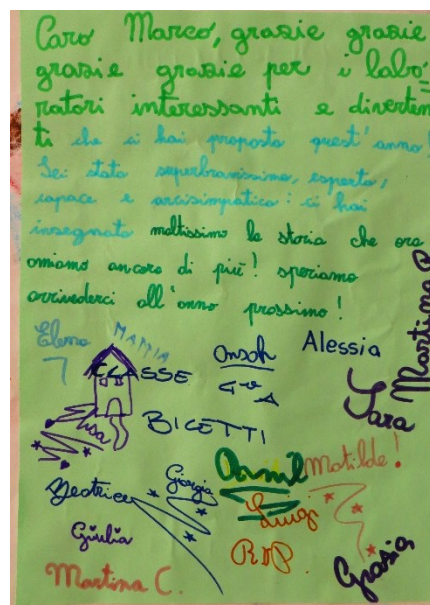 Caro Marco, grazie grazie
grazie grazie per i labo=
ratori interessanti e diverten
ti che ci hai proposto quest'anno!
Sei stato superbravissimo, esperto,
capace e arcisimpatico: ci hai
insegnato moltissimo la storia che ora
amiamo ancora di più! speriamo
arrivederci all'anno prossimo!
Elena MATTIA Ansah Alessia Martina
CLASSE 5ª A Sara
BICETTI
Lisa
Beatrice Giorgia Matilde!
Giulia Luigi
Martina C. Grazia